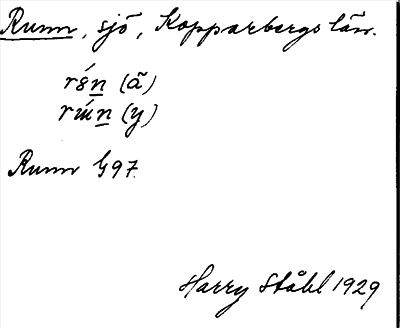 Runn, sjö, Kopparbergs län.
(ä)
(y)
Runn G97.
Harry Ståhl 1929